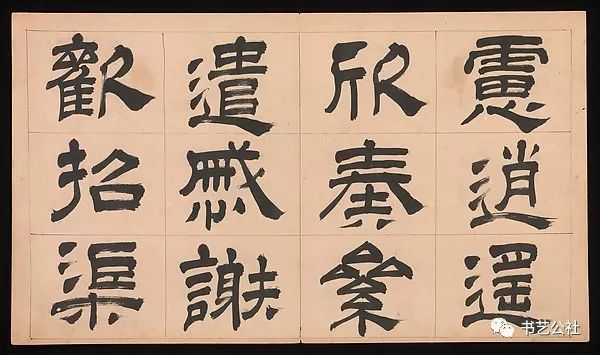 慮逍遥
欣奏絫
遣慼謝
歡招渠
书艺公社